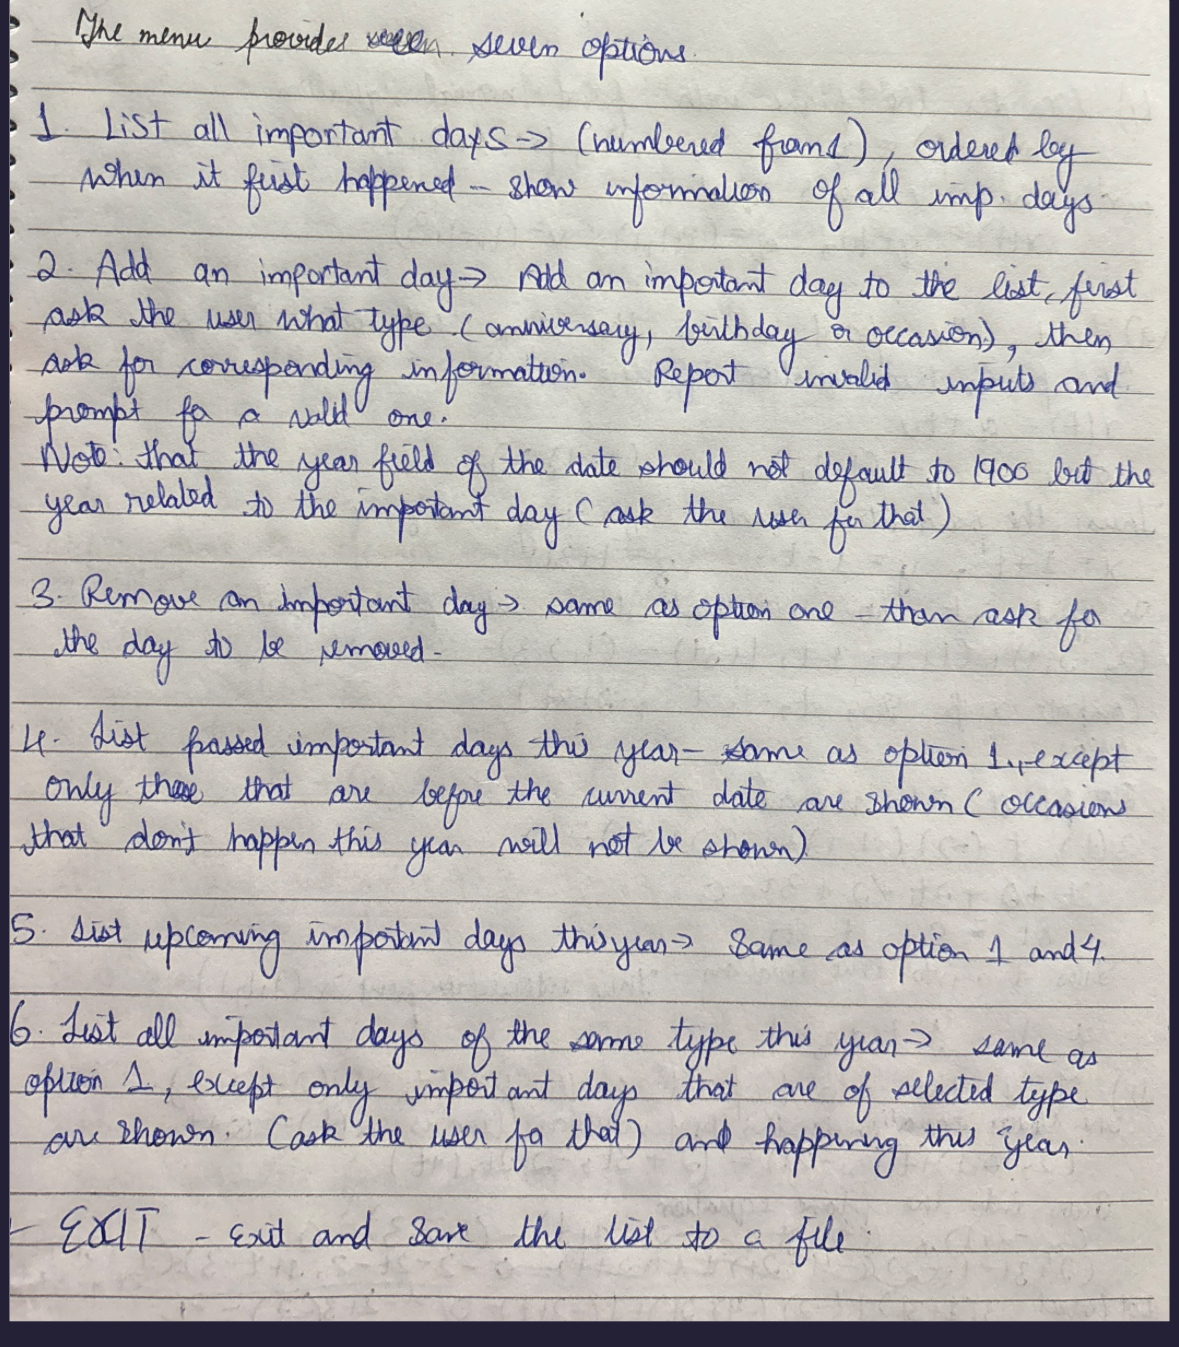 The menu provides seven options.
1. List all important days -> (numbered from 1), ordered by
when it first happened - show information of all imp. days.
2. Add an important day -> Add an important day to the list, first
ask the user what type (anniversary, birthday or occasion), then
ask for corresponding information. Report invalid inputs and
prompt for a valid one.
Note: that the year field of the date should not default to 1900 but the
year related to the important day (ask the user for that)
3. Remove an important day -> same as option one - than ask for
the day to be removed.
4. List passed important days this year - same as option 1, except
only those that are before the current date are shown (occasions
that don't happen this year will not be shown)
5. List upcoming important days this year -> Same as option 1 and 4.
6. List all important days of the same type this year -> same as
option 1, except only important days that are of selected type
are shown. (ask the user for that) and happening this year.
- EXIT - Exit and save the list to a file.